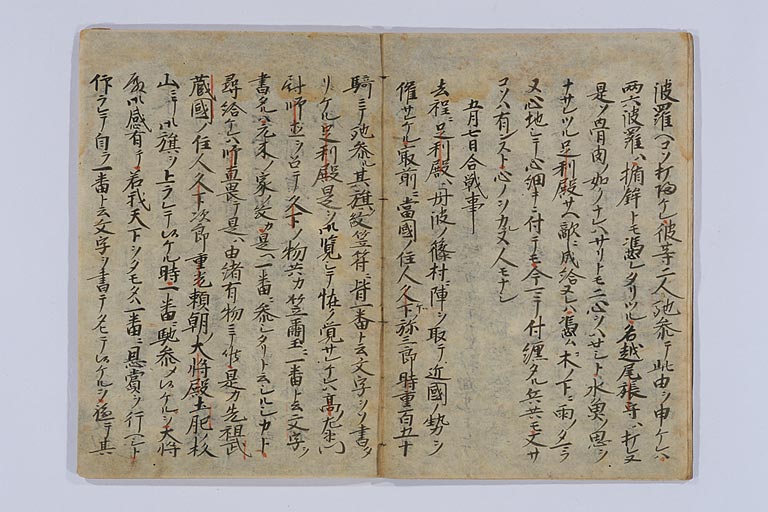 波羅ヘコソ打帰ケレ彼等二人馳参テ此由ヲ申ケレハ
両六波羅ハ楯鉾トモ憑レタリツル名越尾張守ハ打レヌ
是ソ骨肉ノ如ノナレハサリトモ二心ヲハセシト水魚ノ思ヲ
ナサレツル足利殿サヘ敵ニ成給ヌレハ憑ム木ノ下ニ雨ノタマラ
又心地シテ心細キニ付テモ今マテ付纏タル兵共モ又サ
コソハ有ンスラメト心ノヲカヌ人モナシ
五月七日合戦事
去程ニ足利殿ハ丹波ノ篠村ニ陣ヲ取テ近國ノ勢ヲ
催サレケルニ最前ニ當國ノ住人久下弥三郎時重百五十
騎ニテ馳参ル其旗ノ紋笠符ニ皆一番ト云文字ヲソ書タ
リケル足利殿是ヲ御覧シテ怪ク覚サレケレハ高右衛門
尉師直ヲ召テ久下ノ物共カ笠璽ニ一番ト云文字ヲ
書タルハ元来ノ家ノ紋カ是ヘ一番ニ参レリト云シルシカト
尋給ケレハ師直畏テ是ハ由緒有物ニテ候是カ先祖武
蔵國ノ住人久下次郎重光頼朝ノ大将殿土肥ノ杉
山ニテ御旗ヲ上ラレテ候ケル時一番ニ馳参メ候ケルヲ大将
殿御感有テ若我天下ヲタモタハ一番ニ恩賞ヲ行ヘシト
仰ラレテ自ラ一番ト云文字ヲ書テタヒテ候ケルヲ頓テ其